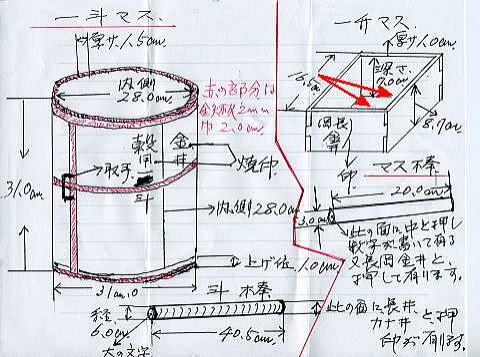 一斗マス.
厚サ1.5cm.
内側
28.0cm.
赤の部分は
鉄板2mm
巾2.0cm.
31.0cm
取手
穀
用
斗
金
井
焼印.
内側28.0cm.
上ゲ底 1.0cm.
31cm.0
斗棒
径
6.0cm
40.5cm.
大の文字
此の面に長井.
カナ井と押
印が有ります.
一升マス.
厚サ1.0cm.
16.5cm
深さ
9.0cm.
8.7cm.
岡長
金井
印
マス棒
20.0cm.
3.0cm
此の面に中と押し
数字が書いて有る
又長岡金井と、
押して有ります.